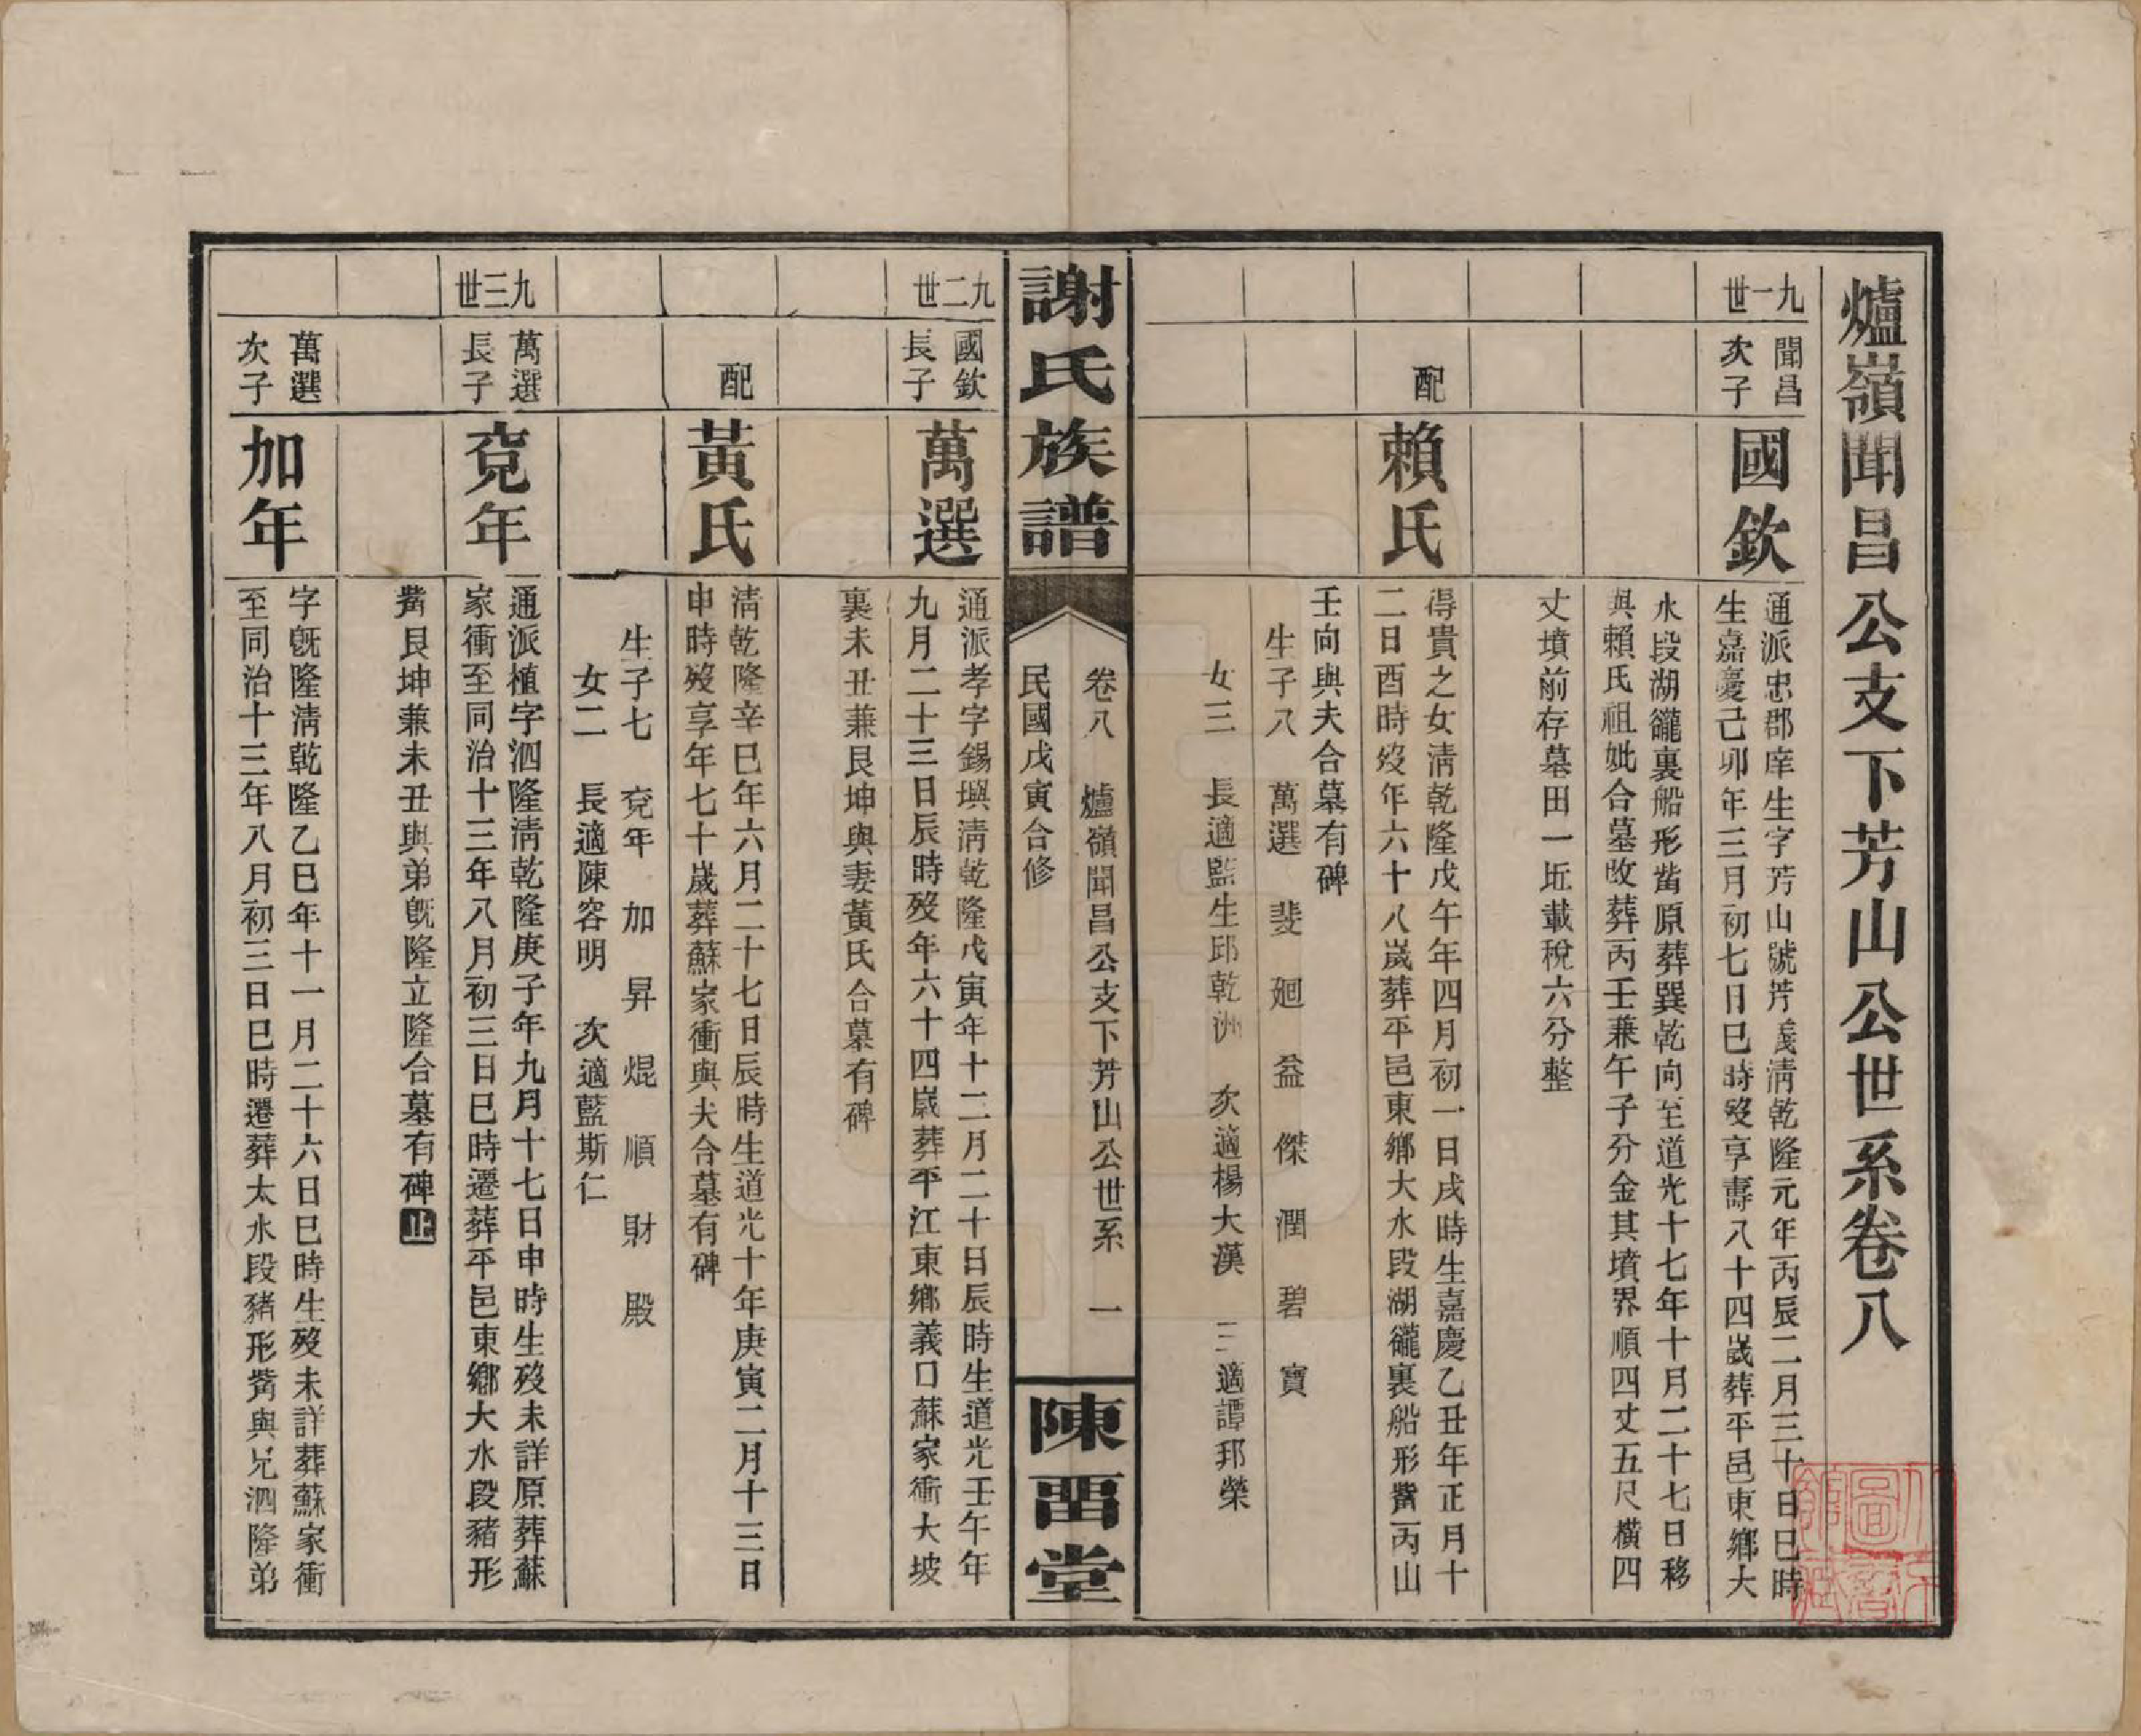 爐嶺聞昌公支下芳山公世系卷八
九一世
聞昌
次子
國欽
通派忠郡庠生字芳山號芳義清乾隆元年丙辰二月三十日巳時
生嘉慶己卯年三月初七日巳時歿享壽八十四歲葬平邑東鄉大
水段湖巃裏船形觜原葬巽乾向至道光十七年十月二十七日移
與賴氏祖妣合墓改葬丙壬兼午子分金其墳界順四丈五尺橫四
丈墳前存墓田一坵載稅六分整
配
賴氏
得貴之女清乾隆戊午年四月初一日戌時生嘉慶乙丑年正月十
二日酉時歿年六十八歲葬平邑東鄉大水段湖巃裏船形觜丙山
壬向與夫合墓有碑
生子八 萬選 斐 廻 益 傑 潤 碧 寶
女三 長適監生邱乾洲 次適楊大漢 三適譚邦榮
謝氏族譜
卷八 爐嶺聞昌公支下芳山公世系 一
民國戊寅合修
陳留堂
九二世
國欽
長子
萬選
通派孝字錫璵清乾隆戊寅年十二月二十日辰時生道光壬午年
九月二十三日辰時歿年六十四歲葬平江東鄉義口蘇家衝大坡
裏未丑兼艮坤與妻黃氏合墓有碑
配
黃氏
清乾隆辛巳年六月二十七日辰時生道光十年庚寅二月十三日
申時歿享年七十歲葬蘇家衝與夫合墓有碑
生子七 兗年 加 昇 焜 順 財 殿
女二 長適陳容明 次適藍斯仁
九三世
萬選
長子
兗年
通派植字泗隆清乾隆庚子年九月十七日申時生歿未詳原葬蘇
家衝至同治十三年八月初三日巳時遷葬平邑東鄉大水段豬形
觜艮坤兼未丑與弟旣隆立隆合墓有碑止
萬選
次子
加年
字旣隆清乾隆乙巳年十一月二十六日巳時生歿未詳葬蘇家衝
至同治十三年八月初三日巳時遷葬太水段豬形觜與兄泗隆弟